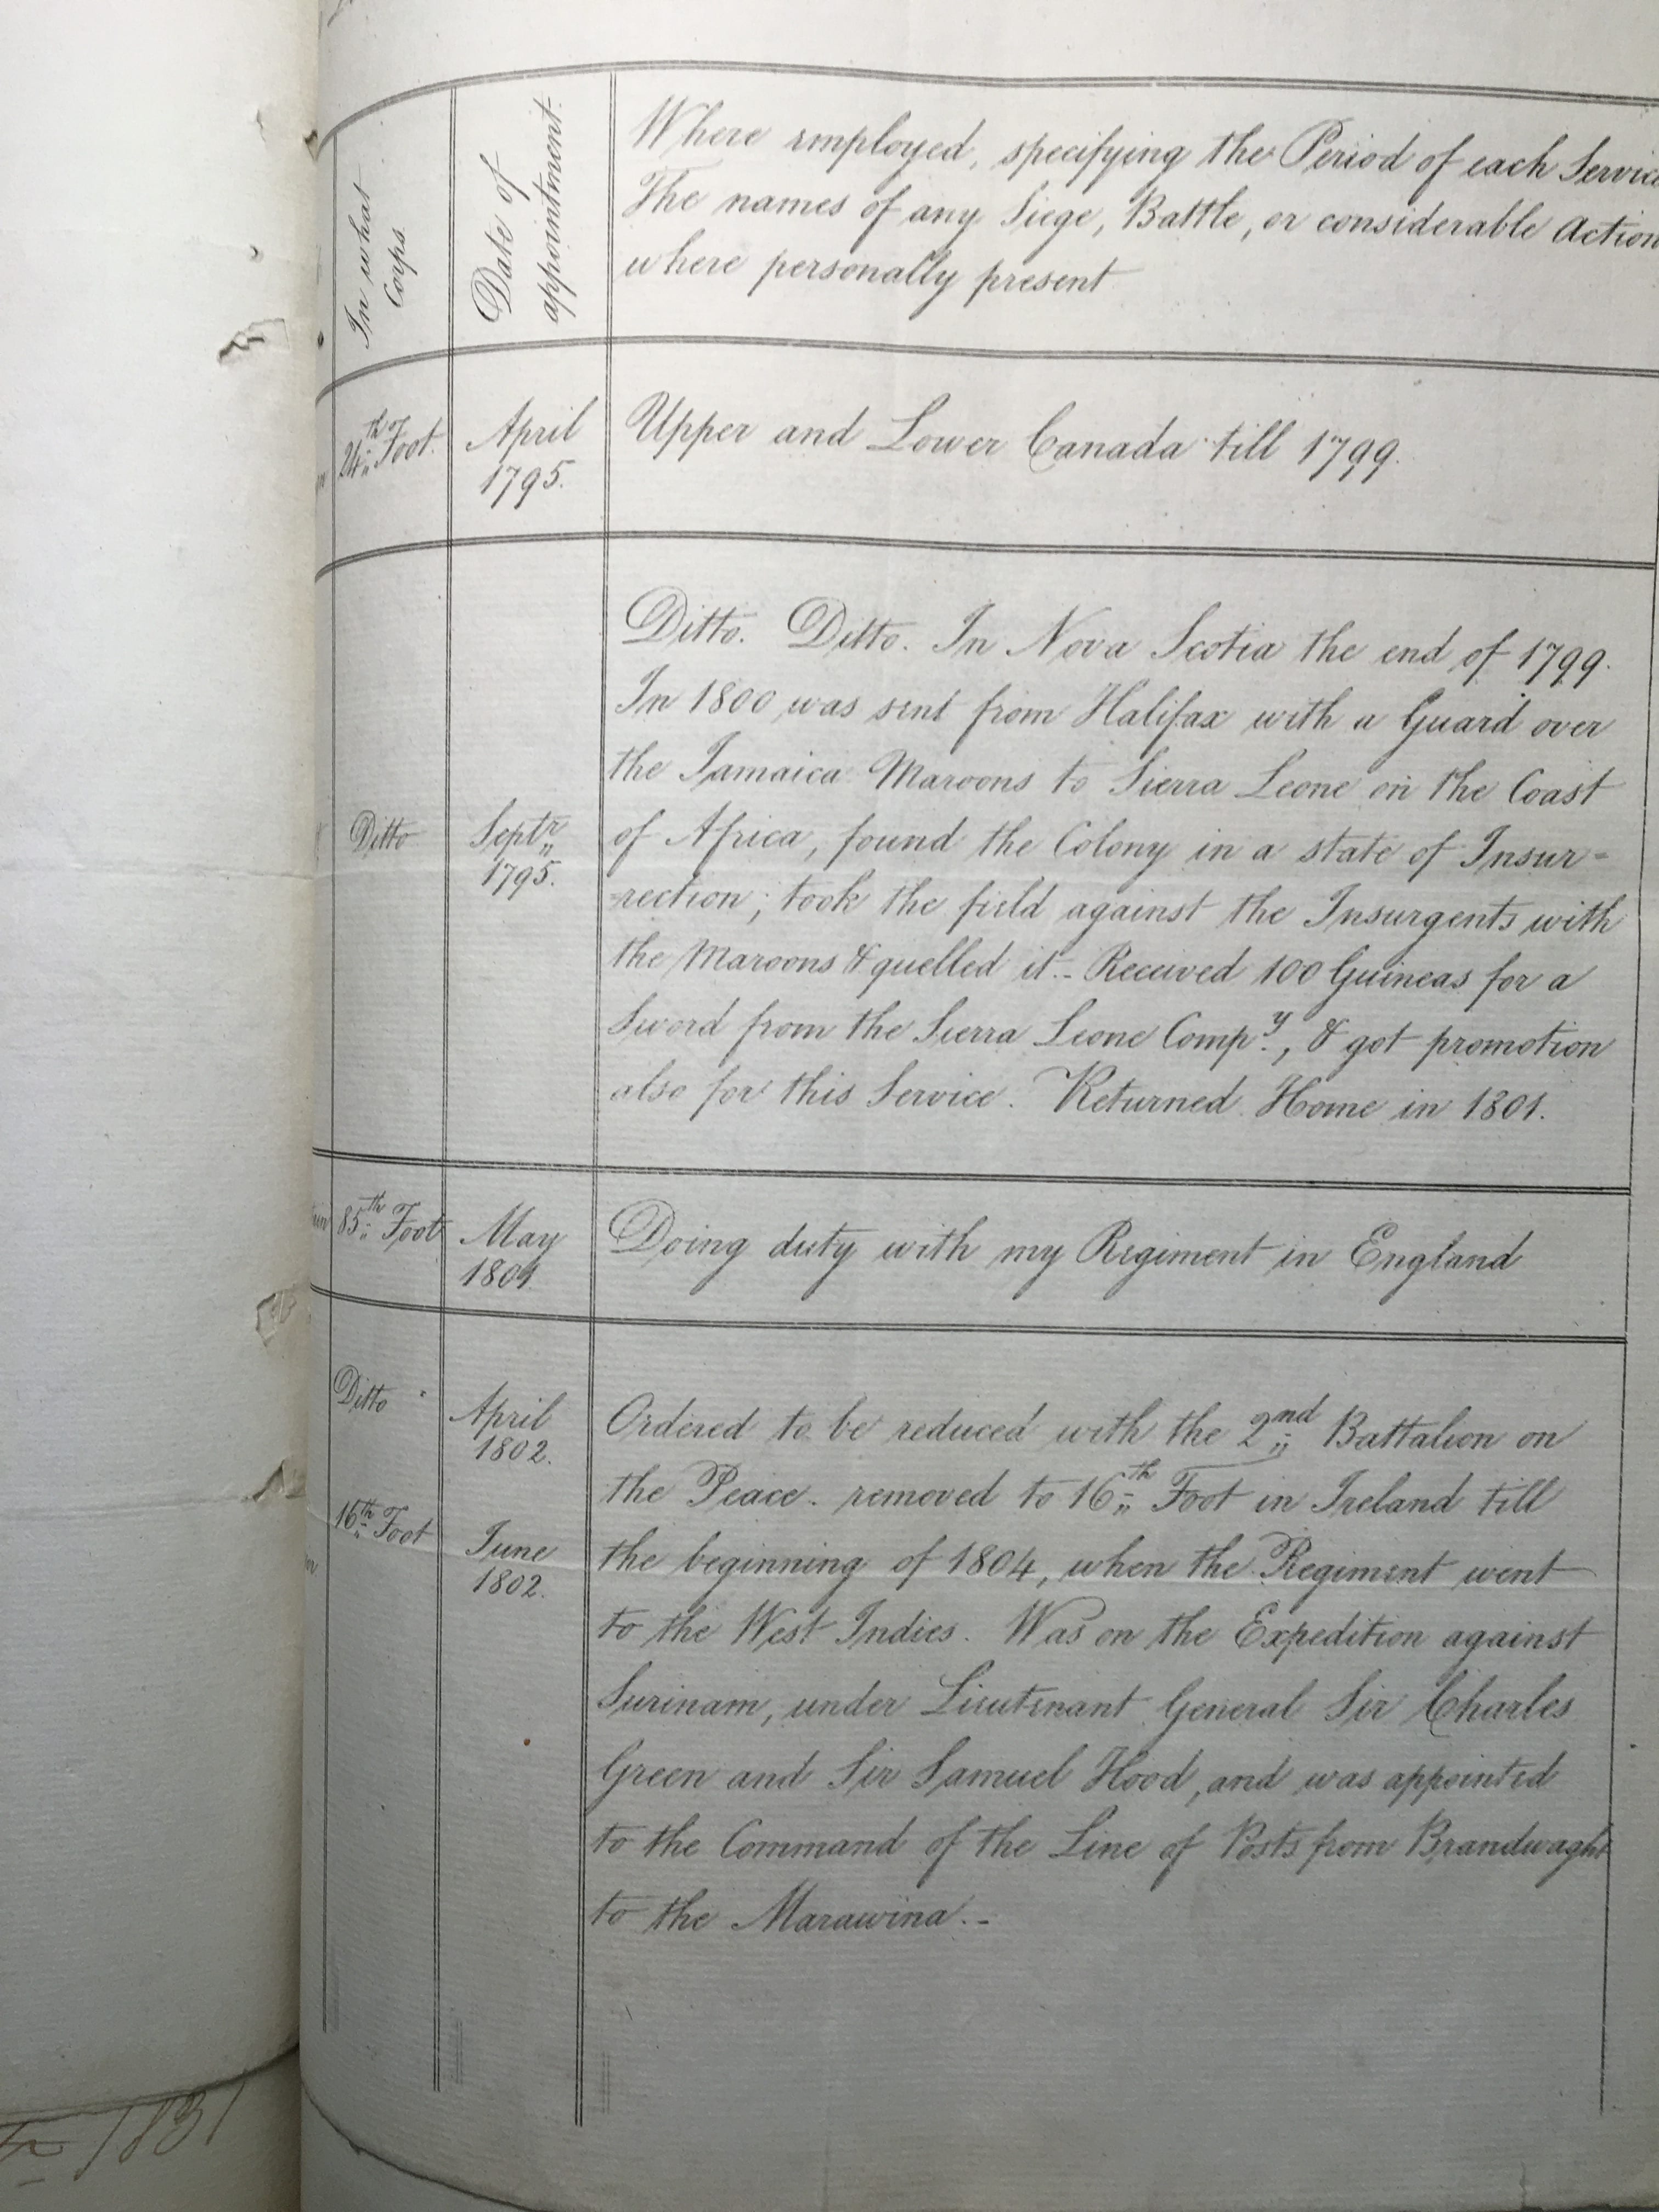 In what
Corps
Date of
appointment.
Where employed, specifying the Period of each Service
The names of any Siege, Battle, or considerable Action
where personally present
24th Foot.
April
1795.
Upper and Lower Canada till 1799.
Ditto
Septr
1795.
Ditto. Ditto. In Nova Scotia the end of 1799.
In 1800 was sent from Halifax with a Guard over
the Jamaica Maroons to Sierra Leone on the Coast
of Africa, found the Colony in a state of Insur=
=rection; took the field against the Insurgents with
the Maroons & quelled it.- Received 100 Guineas for a
Sword from the Sierra Leone Compy., & got promotion
also for this Service. Returned Home in 1801.
85th Foot
May
1801.
Doing duty with my Regiment in England
Ditto
April
1802.
16th Foot
June
1802.
Ordered to be reduced with the 2nd Battalion on
the Peace. removed to 16th Foot in Ireland till
the beginning of 1804, when the Regiment went
to the West Indies. Was on the Expedition against
Surinam, under Lieutenant General Sir Charles
Green and Sir Samuel Hood, and was appointed
to the Command of the Line of Posts from Brandwaght
to the Marawina.-
1831